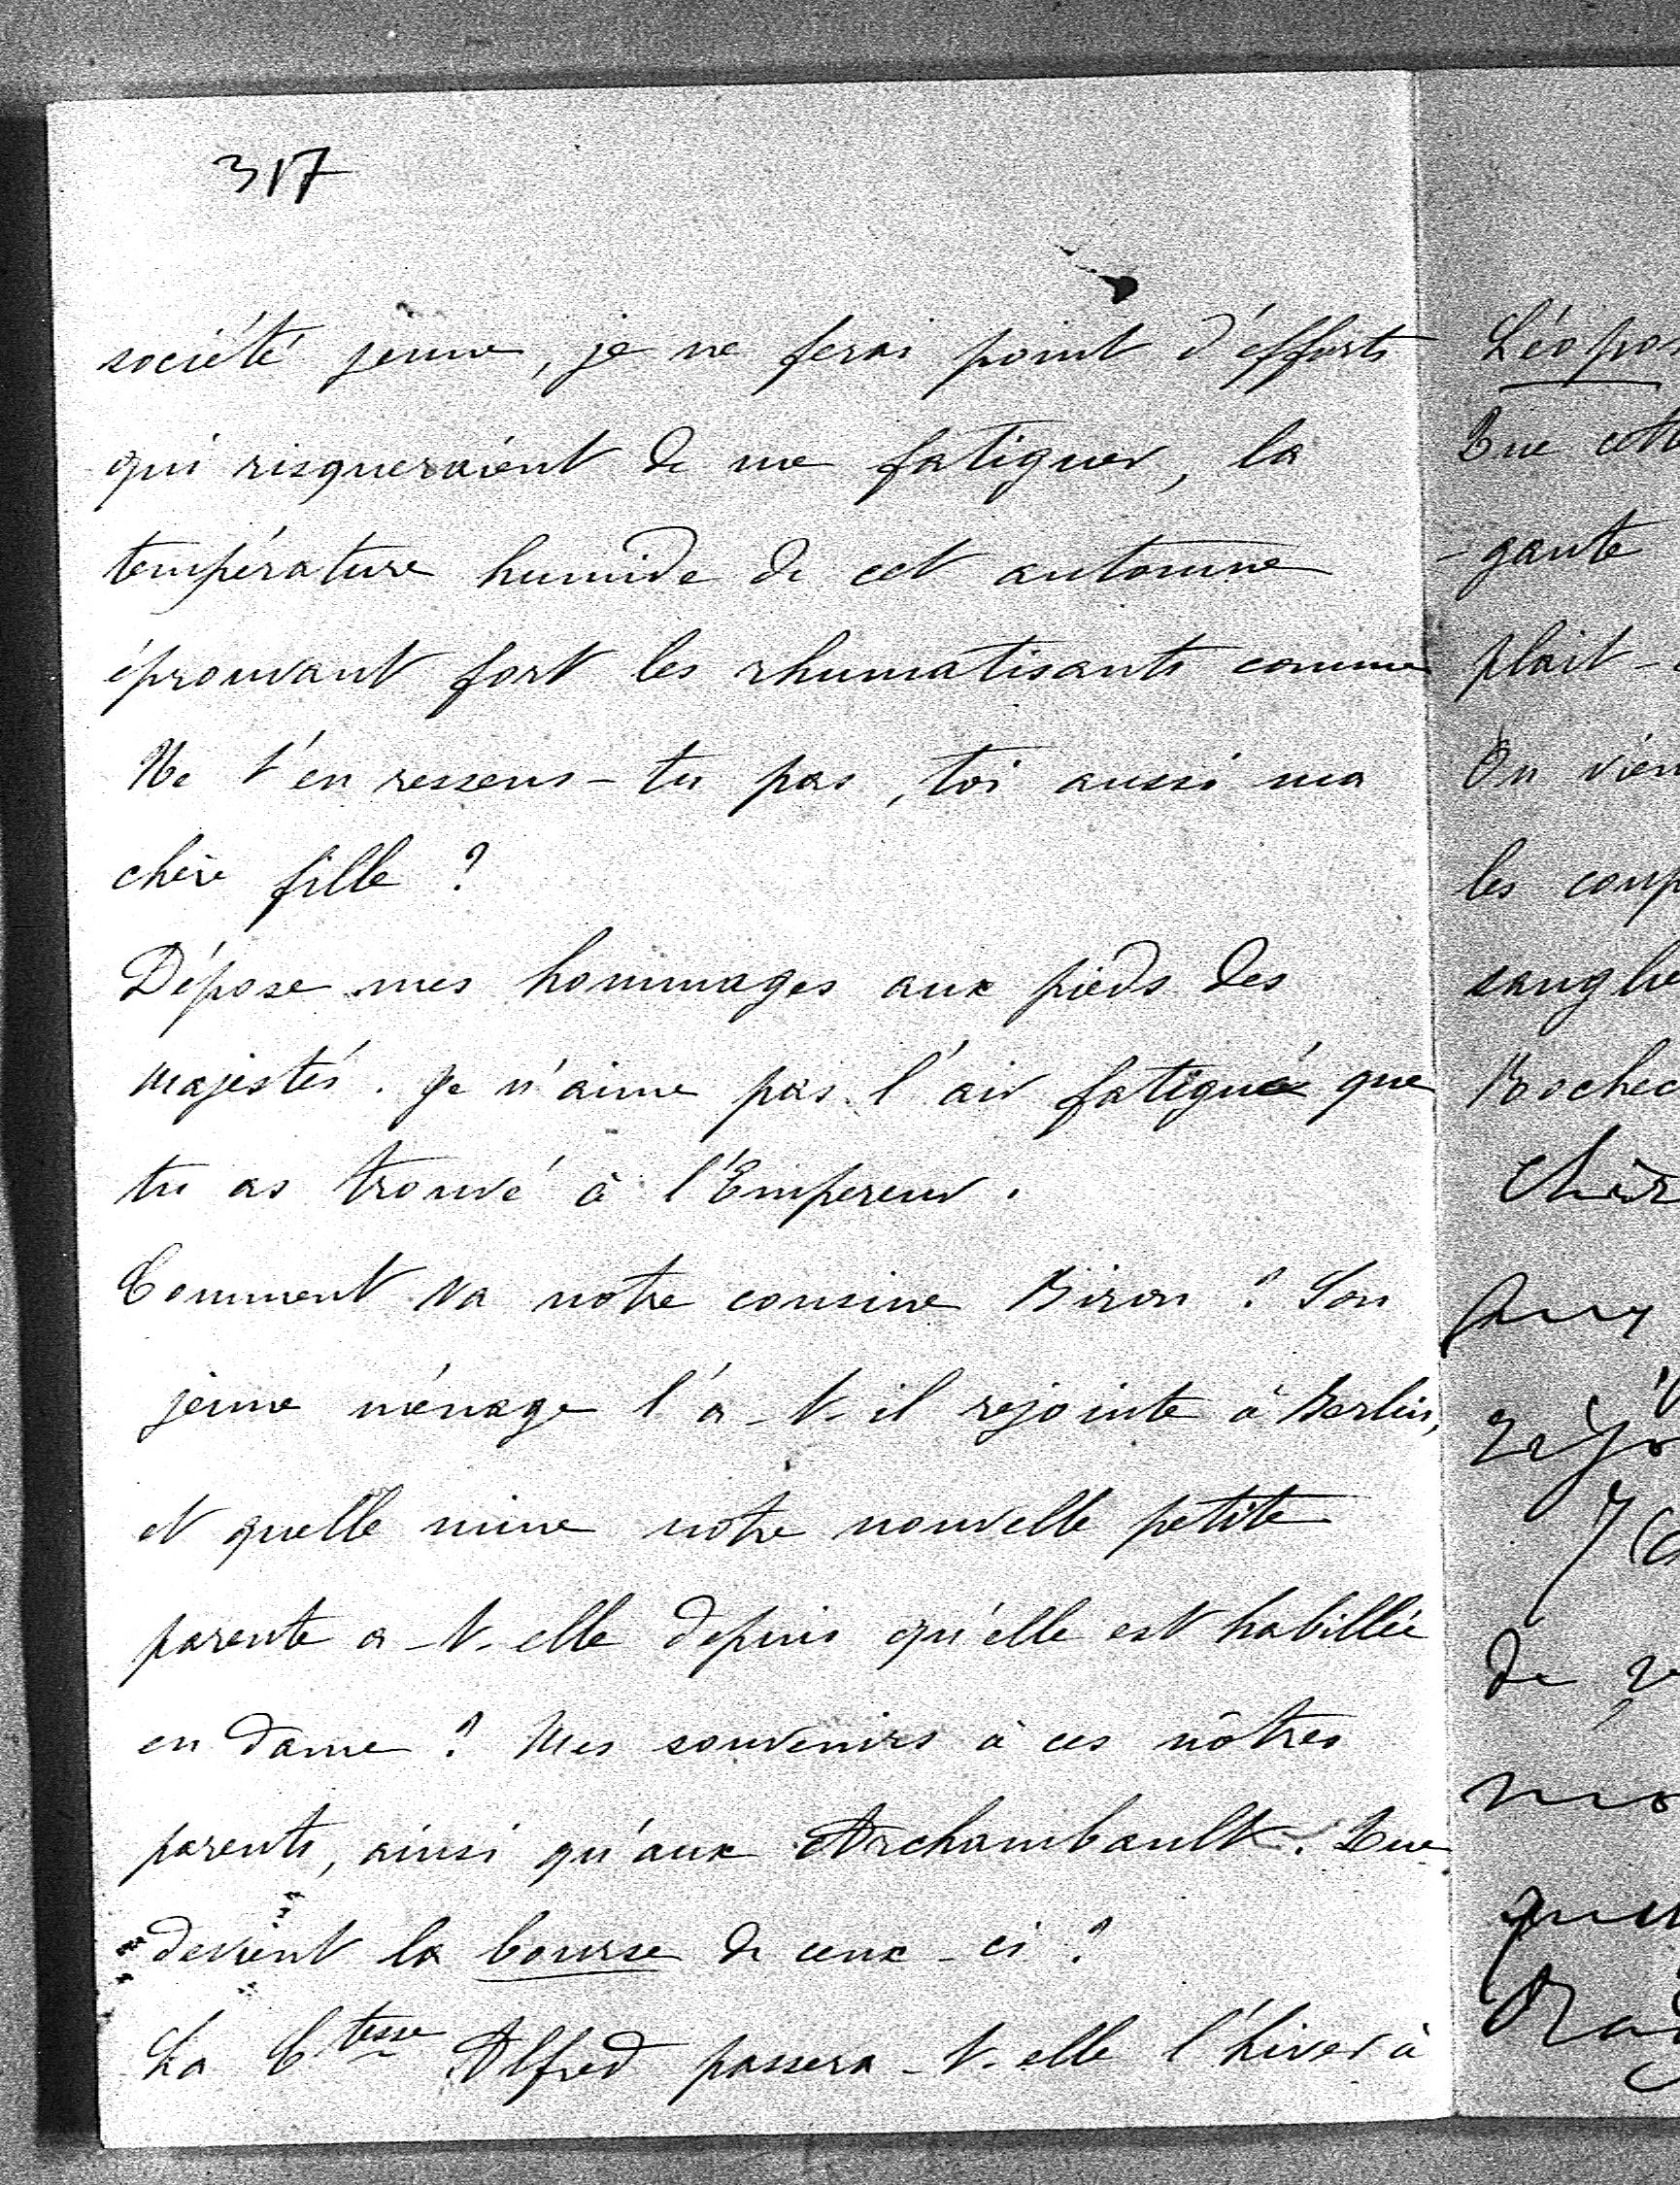 317
société jeune, je ne ferai point d'éfforts
qui risqueraient de me fatiguer, la
température humide de cet automne
éprouvant fort les rhumatisants comme
Ne t'en ressens-tu pas, toi aussi ma
chère fille ?
Dépose mes hommages aux pieds des
majestés. Je n'aime pas l'air fatigué que
tu as trouvé à l'Empereur.
Comment va notre cousine Biron ? Son
jeune ménage l'a-t-il rejointe à Berlin,
et quelle mine notre nouvelle petite
parente a-t-elle depuis qu'elle est habillée
en dame ? Mes souvenirs à ces nôtres
parents, ainsi qu'aux Archambault. Que
devient la bourse de ceux-ci ?
La Ctesse Alfred passera-t-elle l'hiver à
Léopo
Que cett
-gante
plait-
On vien
les coup
sanglie
Rochec
chèr
de